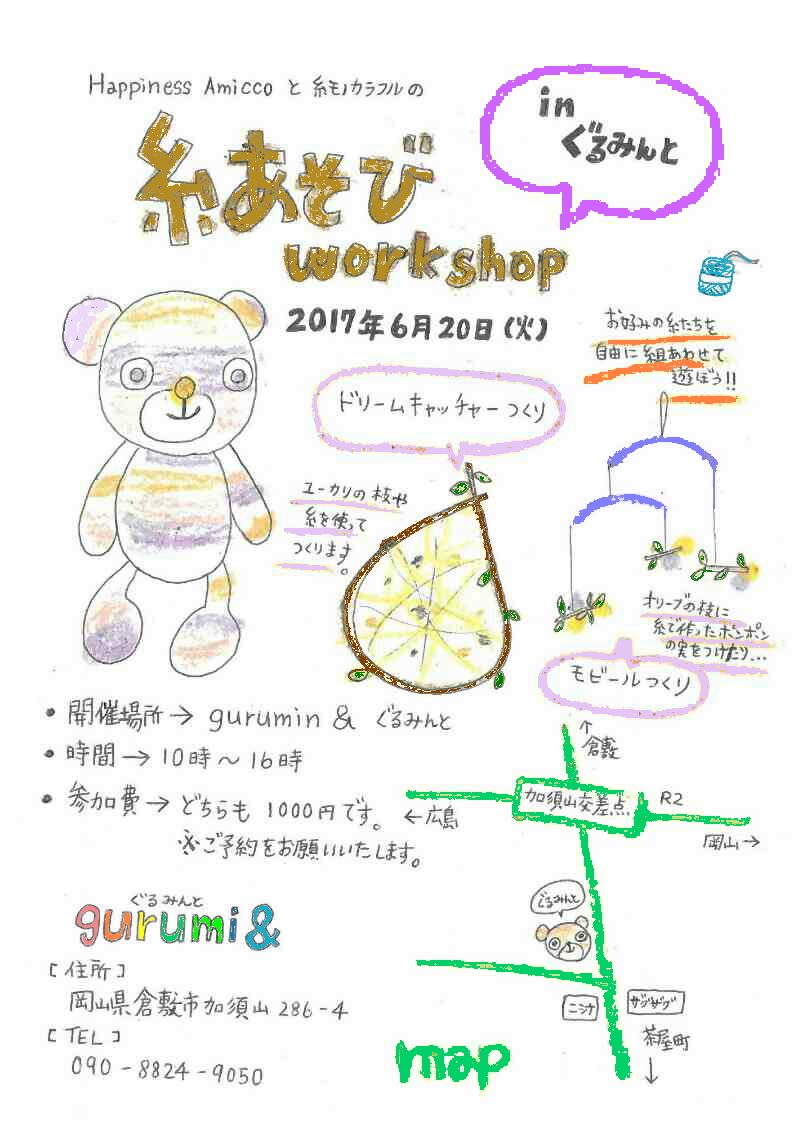 Happiness Amicco と 糸モノカラフルの
in
ぐるみんと
糸あそび
workshop
2017年6月20日(火)
お好みの糸たちを
自由に組あわせて
遊ぼう!!
ドリームキャッチャーつくり
ユーカリの枝や
糸を使って
つくります。
オリーブの枝に
糸で作ったポンポン
の実をつけたり...
モビールつくり
• 開催場所→ gurumin & ぐるみんと
• 時間→10時〜16時
• 参加費→どちらも 1000円です。
※ご予約をお願いいたします。
↑
倉敷
加須山交差点
R2
←広島
岡山→
ぐるみんと
ニシナ
ザグザグ
茶屋町
↓
map
ぐるみんと
gurumi&
[住所]
岡山県倉敷市加須山286-4
[TEL]
090-8824-9050